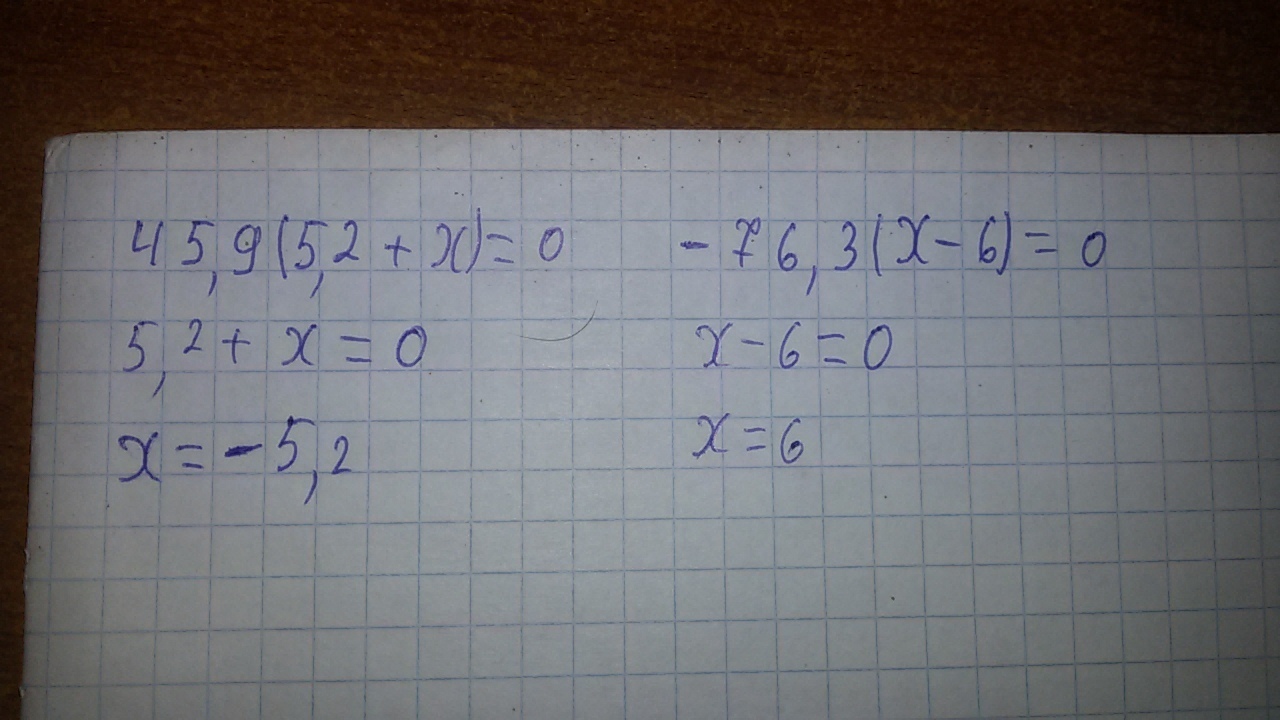 45,9(5,2 + x) = 0
5,2 + x = 0
x = -5,2
-76,3(x - 6) = 0
x - 6 = 0
x = 6